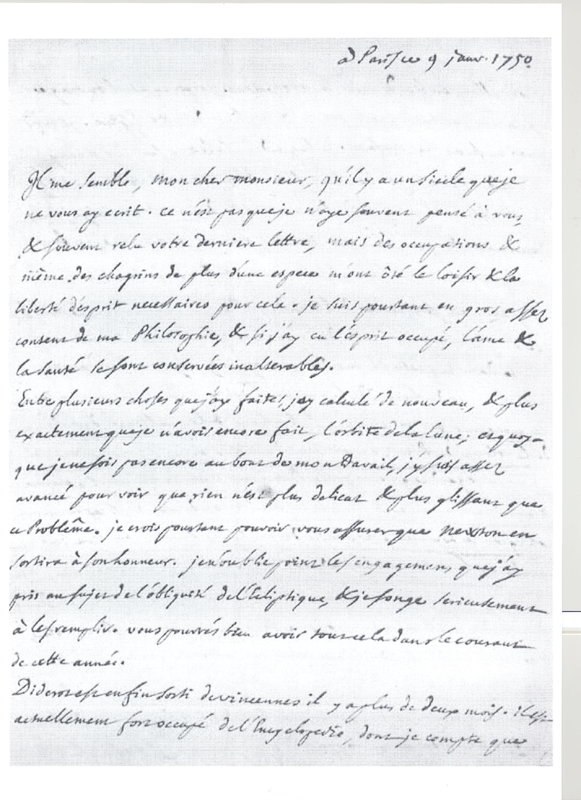 à Paris ce 9 janv. 1750
Il me semble, mon cher monsieur, qu'il y a un siecle que je
ne vous ay ecrit. ce n'est pas que je n'aye souvent pensé à vous,
& souvent relu votre derniere lettre, mais des occupations &
même des chagrins de plus d'une espece m'ont ôté le loisir & la
liberté d'esprit necessaires pour cela. je suis pourtant en gros assez
content de ma Philosophie, & si j'ay eu l'esprit occupé, l'ame &
la santé se sont conservées inalterables.
Entre plusieurs choses que j'ay faites, j'ay calculé de nouveau, & plus
exactement que je n'avois encore fait, l'orbite de la lune; et quoy-
que je ne sois pas encore au bout de mon travail, j'y suis assez
avancé pour voir que rien n'est plus delicat & plus glissant que
ce Problême. je crois pourtant pouvoir vous assurer que Newton en
sortira à son honneur. je n'oublie point les engagemens que j'ay
pris au sujet de l'obliquité de l'Ecliptique, & je songe serieusement
à les remplir. vous pourrés bien avoir tout cela dans le courant
de cette année.
Diderot est enfin sorti de vincennes il y a plus de deux mois. il est
actuellement fort occupé de l'Encyclopedie, dont je compte que